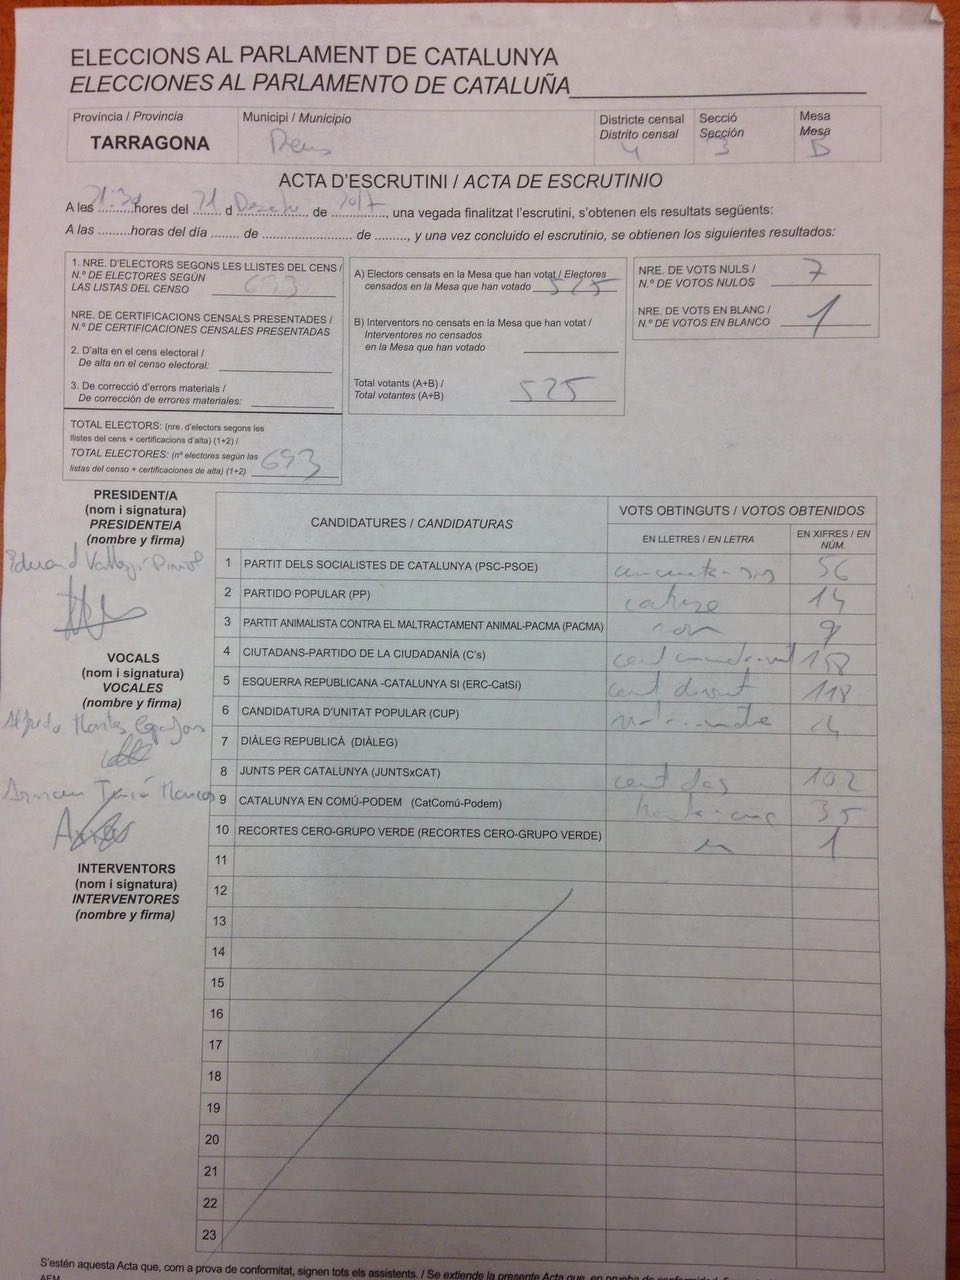 ELECCIONS AL PARLAMENT DE CATALUNYA
ELECCIONES AL PARLAMENTO DE CATALUÑA
Província / Provincia
TARRAGONA
Municipi / Municipio
Reus
Districte censal
Distrito censal
4
Secció
Sección
3
Mesa
Mesa
B
ACTA D'ESCRUTINI / ACTA DE ESCRUTINIO
A les 21:30 hores del 21 d Desembre de 2017, una vegada finalitzat l'escrutini, s'obtenen els resultats següents:
A las .........horas del día ....... de ........................ de ........., y una vez concluido el escrutinio, se obtienen los siguientes resultados:
1. NRE. D'ELECTORS SEGONS LES LLISTES DEL CENS /
N.º DE ELECTORES SEGÚN
LAS LISTAS DEL CENSO 693
NRE. DE CERTIFICACIONS CENSALS PRESENTADES /
N.º DE CERTIFICACIONES CENSALES PRESENTADAS
2. D'alta en el cens electoral /
De alta en el censo electoral:
3. De correcció d'errors materials /
De corrección de errores materiales:
TOTAL ELECTORS: (nre. d'electors segons les
llistes del cens + certificacions d'alta) (1+2) /
TOTAL ELECTORES: (nº electores según las
listas del censo + certificaciones de alta) (1+2) 693
A) Electors censats en la Mesa que han votat / Electores
censados en la Mesa que han votado 525
B) Interventors no censats en la Mesa que han votat /
Interventores no censados
en la Mesa que han votado
Total votants (A+B) /
Total votantes (A+B) 525
NRE. DE VOTS NULS /
N.º DE VOTOS NULOS 7
NRE. DE VOTS EN BLANC /
N.º DE VOTOS EN BLANCO 1
PRESIDENT/A
(nom i signatura)
PRESIDENTE/A
(nombre y firma)
VOCALS
(nom i signatura)
VOCALES
(nombre y firma)
Alfredo
INTERVENTORS
(nom i signatura)
INTERVENTORES
(nombre y firma)
CANDIDATURES / CANDIDATURAS
VOTS OBTINGUTS / VOTOS OBTENIDOS
EN LLETRES / EN LETRA
EN XIFRES / EN NÚM.
1 PARTIT DELS SOCIALISTES DE CATALUNYA (PSC-PSOE) cinquanta-sis 56
2 PARTIDO POPULAR (PP) catorze 14
3 PARTIT ANIMALISTA CONTRA EL MALTRACTAMENT ANIMAL-PACMA (PACMA) nou 9
4 CIUTADANS-PARTIDO DE LA CIUDADANÍA (C's) cent cinquanta-vuit 158
5 ESQUERRA REPUBLICANA -CATALUNYA SI (ERC-CatSí) cent divuit 118
6 CANDIDATURA D'UNITAT POPULAR (CUP) 24
7 DIÀLEG REPUBLICÀ (DIÀLEG)
8 JUNTS PER CATALUNYA (JUNTSxCAT) cent dos 102
9 CATALUNYA EN COMÚ-PODEM (CatComú-Podem) trenta-cinc 35
10 RECORTES CERO-GRUPO VERDE (RECORTES CERO-GRUPO VERDE) un 1
11
12
13
14
15
16
17
18
19
20
21
22
23
S'estén aquesta Acta que, com a prova de conformitat, signen tots els assistents. / Se extiende la presente Acta que, en prueba de conformidad,